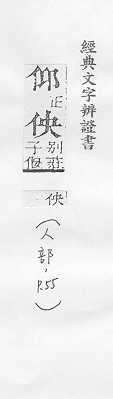 經典文字辨證書
仰
正
佒
別莊
子偃
佒
(人部,P.55)